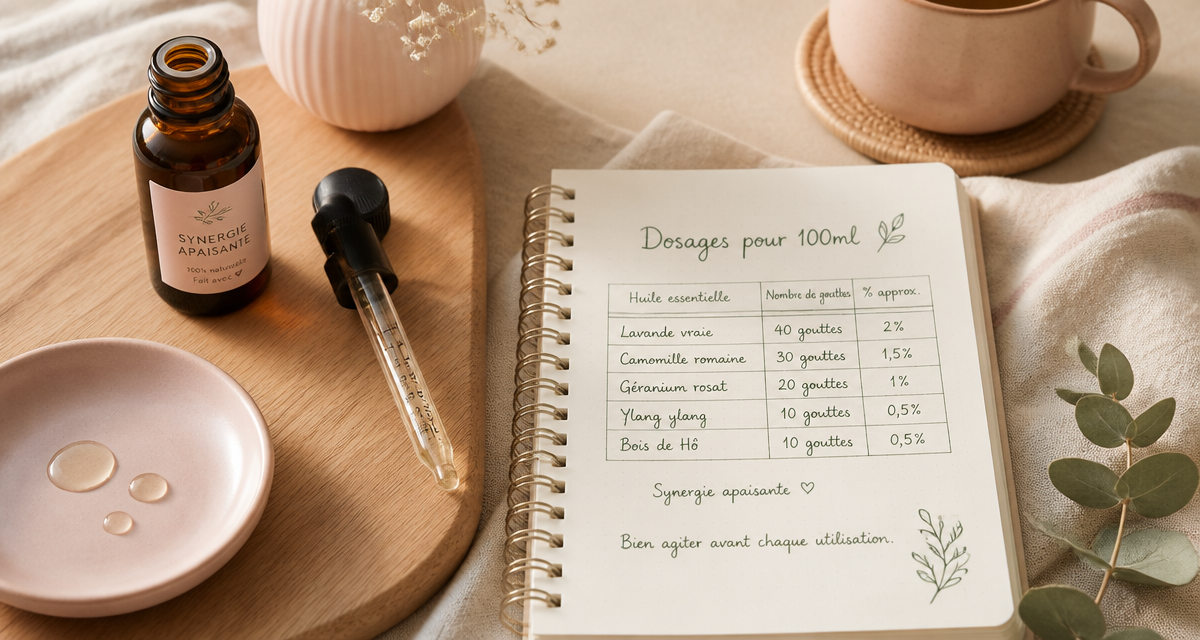 SYNERGIE
APAISANTE
100% naturelle
Fait avec ♡
Dosages pour 100ml
Huile essentielle Nombre de gouttes % approx.
Lavande vraie 40 gouttes 2%
Camomille romaine 30 gouttes 1,5%
Géranium rosat 20 gouttes 1%
Ylang ylang 10 gouttes 0,5%
Bois de Hô 10 gouttes 0,5%
Synergie apaisante ♡
Bien agiter avant chaque utilisation.